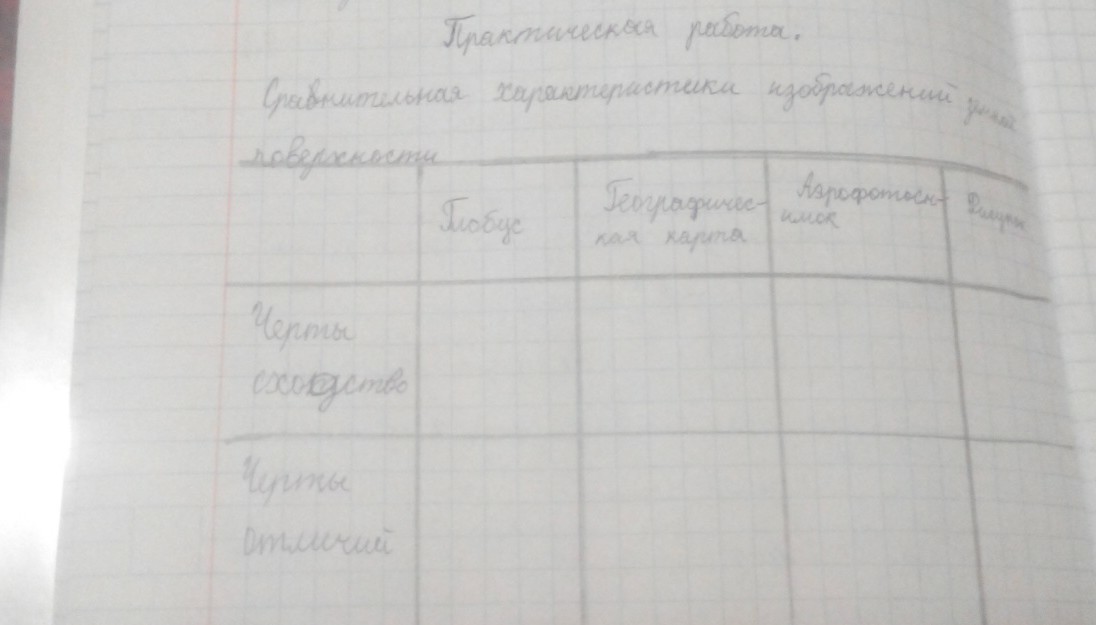 Практическая работа.
Сравнительная характеристики изображений земной
поверхности
Глобус
Географичес-
кая карта
Аэрофотосн-
имок
Черты
сходство
Черты
отличий